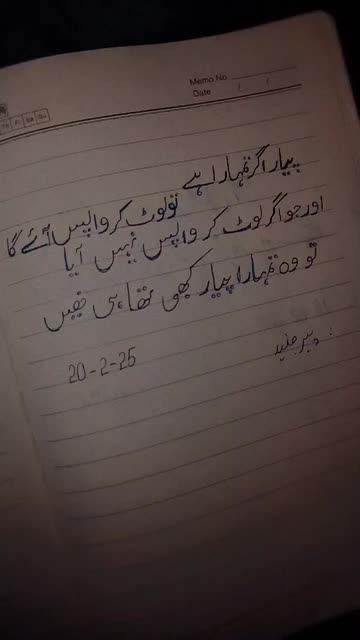 Memo No.
Date / /
Th Fr Sa Su
پیار اگر تمہارا ہے
تو لوٹ کر واپس آئے گا
اور جو اگر لوٹ کر واپس نہیں آیا
تو وہ تمہارا پیار کبھی تھا ہی نہیں
20-2-25